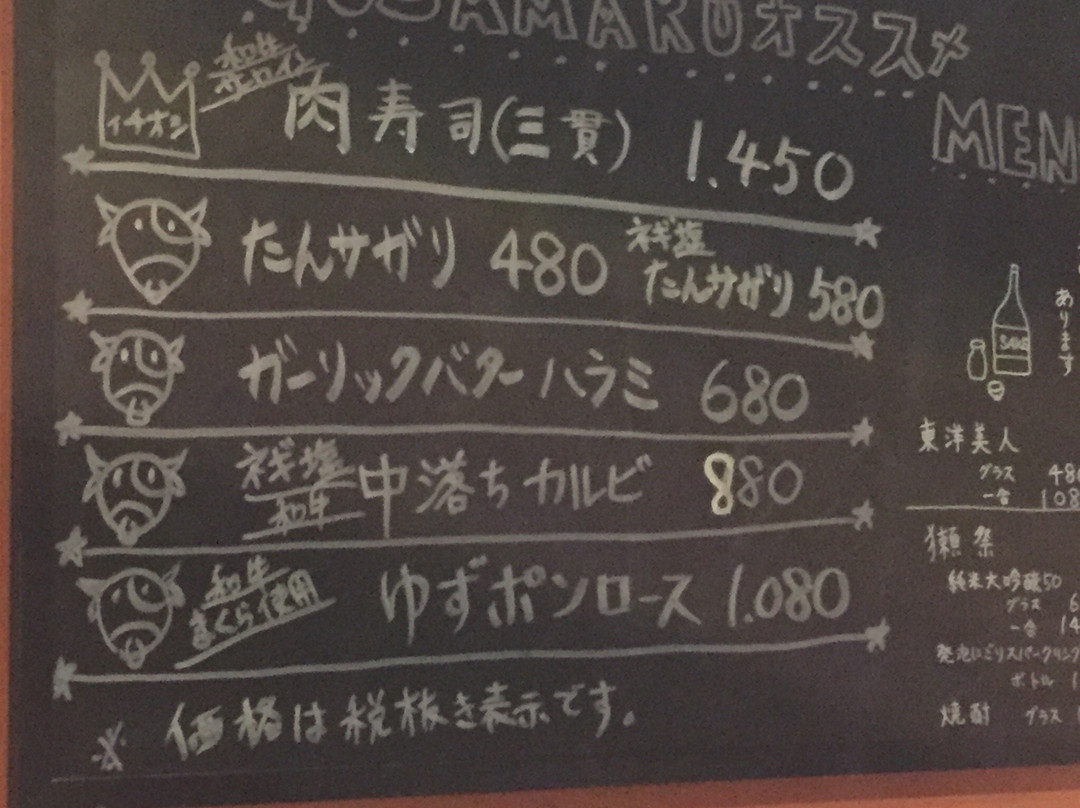 AMARUオススメ
イチオシ
和牛
サーロイン
肉寿司(三貫) 1.450
たんサガリ 480
ネギ塩
たんサガリ 580
ガーリックバターハラミ 680
ネギ塩
和牛
中落ちカルビ 880
和牛
まくら使用
ゆずポンロース 1.080
※ 価格は税抜き表示です。
MEN
SAKE
あります
東洋美人
グラス 480
一合 108
獺祭
純米大吟醸50
グラス 6
一合 14
発泡にごりスパークリング
ボトル 1
焼酎 グラス